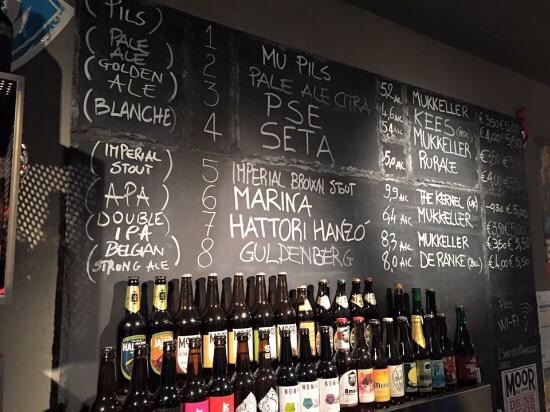 (PILS) 1 MU PILS 5,2 ALC MUKKELLER €3,50 €5,00
(PALE ALE) 2 PALE ALE CITRA 4,6 ALC KEES €4,00
(GOLDEN ALE) 3 PSE MUKKELLER
(BLANCHE) 4 SETA 5,0 ALC RURALE
(IMPERIAL STOUT) 5 IMPERIAL BROWN STOUT 9,9 ALC THE KERNEL (UK) €5,00
(APA) 6 MARINA 6,4 ALC MUKKELLER
(DOUBLE IPA) 7 HATTORI HANZÓ 8,3 ALC MUKKELLER
(BELGIAN STRONG ALE) 8 GULDENBERG 8,0 ALC DE RANKE (BEL) €4,00 €5,50
FREE
WI-FI
MOOR
DRINK